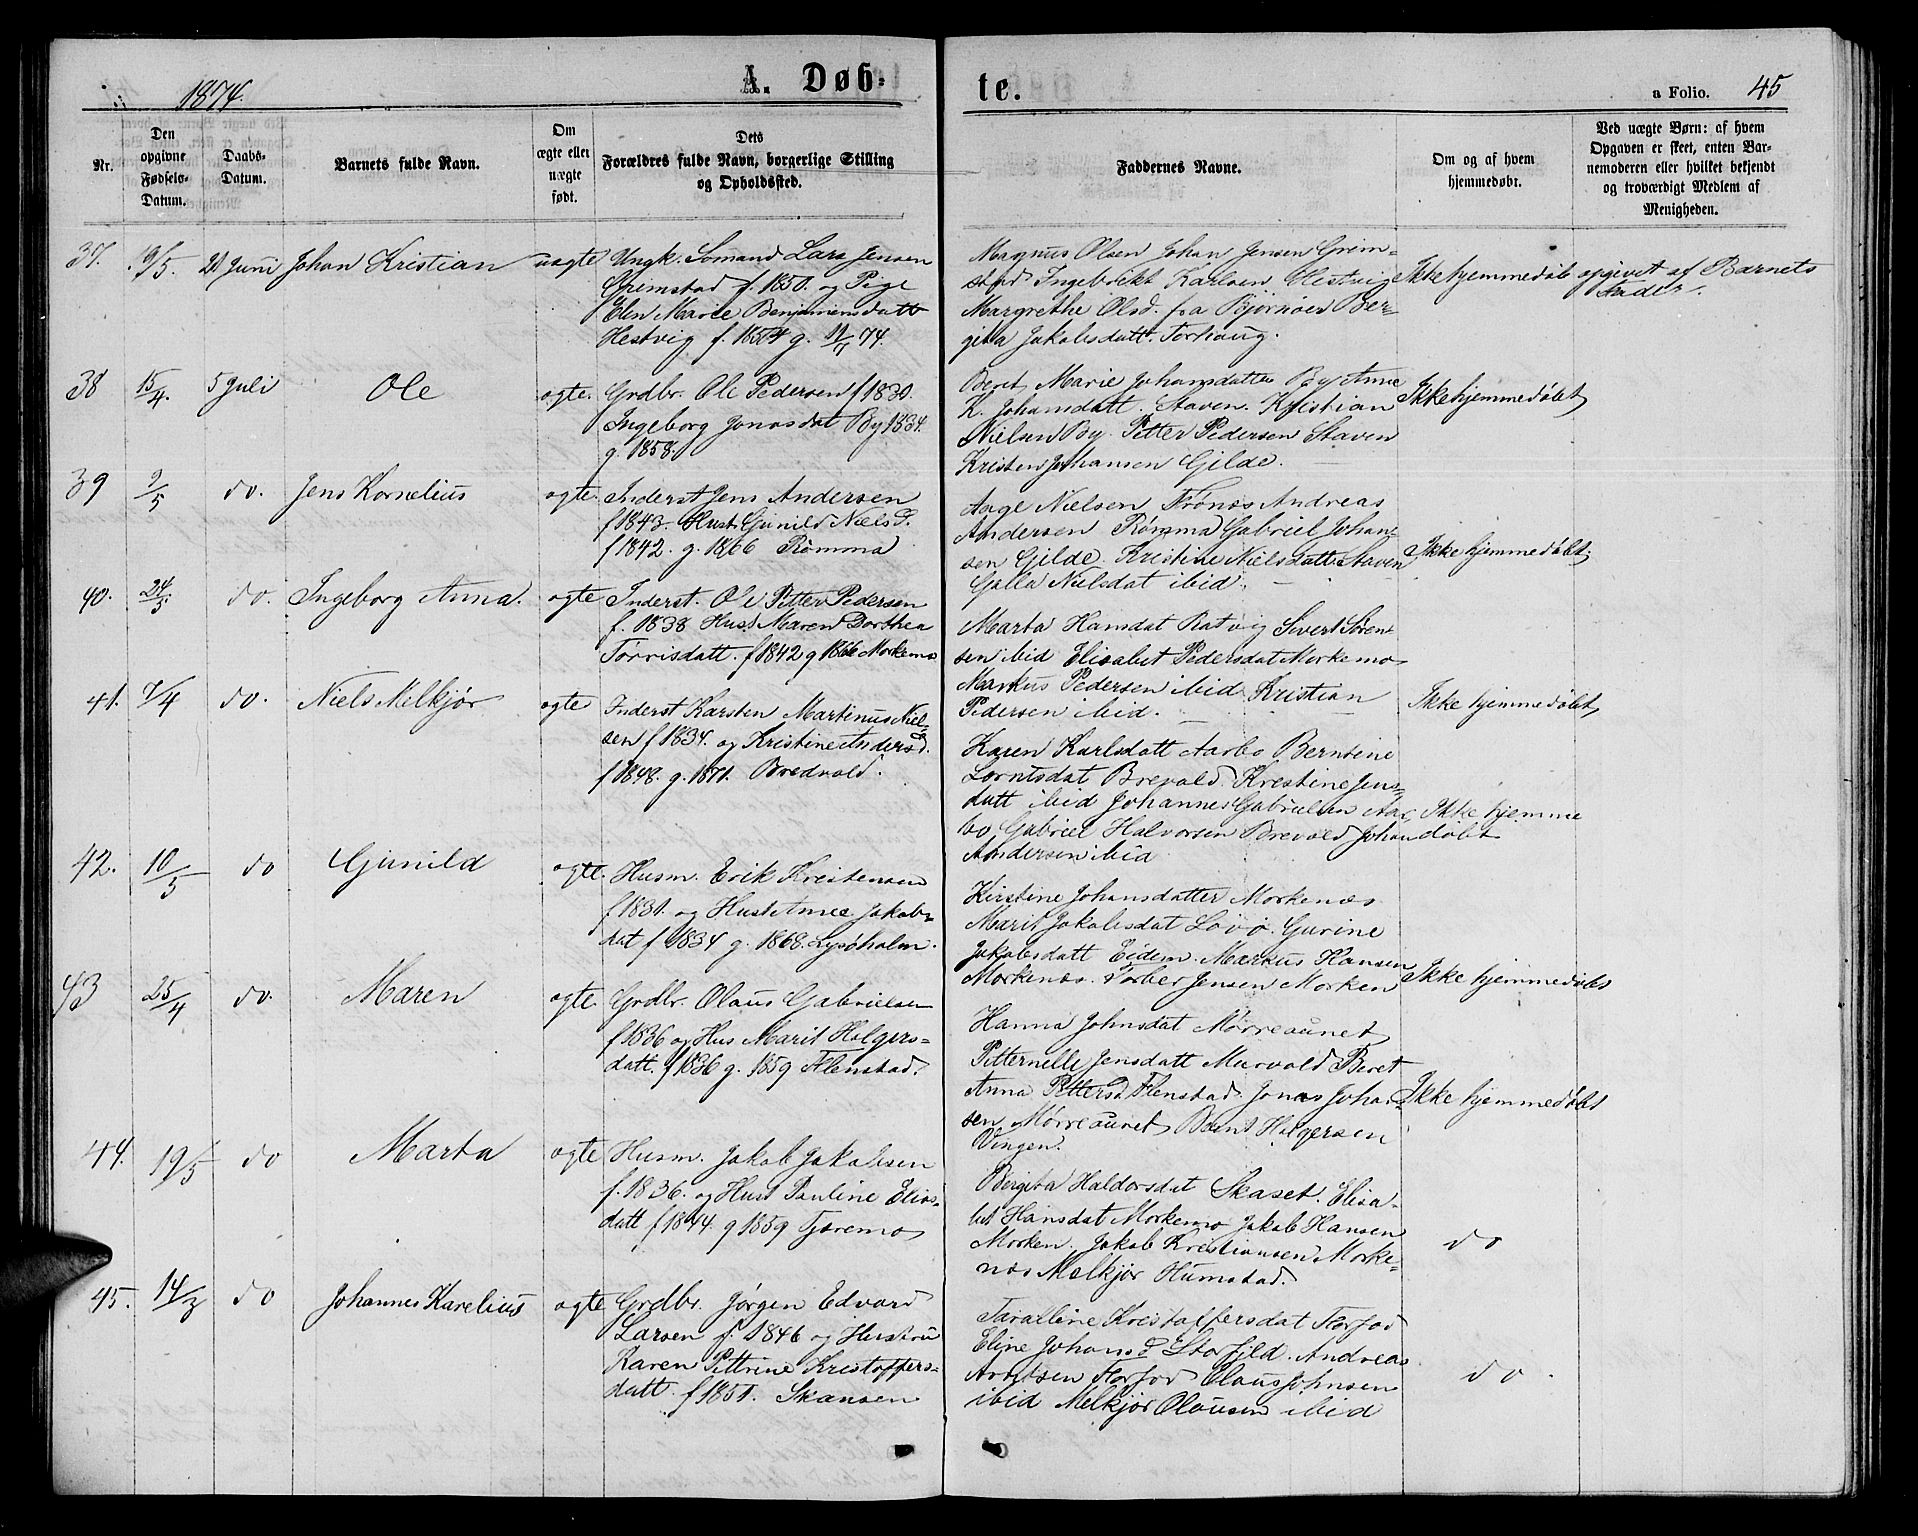 1874.
A. Døb-
te.
a Folio. 45
Nr.
Den
opgivne
Fødsels-
Datum.
Daabs-
Datum.
Barnets fulde Navn.
Om
ægte eller
uægte
født.
Dets
Forældres fulde Navn, borgerlige Stilling
og Opholdssted.
Faddernes Navne.
Om og af hvem
hjemmedøbt.
Ved uægte Børn: af hvem
Opgaven er skeet, enten Bar-
nemoderen eller hvilket bekjendt
og troværdigt Medlem af
Menigheden.
37. 19/5. 21 Juni Johan Kristian uægte Ungk. Sømand Lars Jensen
Gremstad f. 1850. og Pige
Elen Marie Benjaminsdatt
Hestvig f. 1854 g. 74.
Magnus Olsen Johan Jensen Grem-
stad Ingebrikt Karlsen Hestvig
Margrethe Olsd. fra Bjørnøer Ber-
gita Jakobsdatt. Torhaug.
Ikke hjemmedøb opgivet af Barnets
Fader.
38 15/4. 5 Juli Ole ægte. Grdbr. Ole Pedersen f 1830.
Ingeborg Jonasdat By 1834.
g. 1858.
Beret Marie Johansdatter By Ane
K. Johansdatt. Staven. Kristian
Nielsen By. Petter Pedersen Staven
Kristen Johansen Gilde.
Ikke hjemmedøbt
39 9/5 do. Jens Kornelius ægte. Inderst Jens Andersen
f 1843. Hust. Gunild Niels d.
f 1842. g. 1866 Rømma
Aage Nielsen Frønes Andreas
Andersen Rømma Gabriel Johan-
sen Gilde Kristine Nielsdatt Staven
Golla Nielsdat ibid.
Ikke hjemmedøbt
40. 24/5 do. Ingeborg Anna. ægte Inderst. Ole Petter Pedersen
f. 1838 Hust Maren Dorthea
Tørrisdatt. f 1842 g 1866 Morkemo
Marta Hansdat Ratvig Sivert Søren-
sen ibid Elisabet Pedersdat Morkemo
Markus Pedersen ibid Kristian
Pedersen ibid.
Ikke hjemmedøbt
41. 7/4 do. Niels Melkjør ægte Inderst Karsten Martinus Niel-
sen f 1834. og Kristine Anders d.
f 1848. g. 1871. Bredvold.
Karen Karlsdatt Aarbo Berntine
Lorntsdat Brevold Krestine Jens-
datt ibid Johannes Gabrielsen Aar-
bo Gabriel Halvorsen Brevold Johan
Andersen ibid
Ikke hjemme
døbt
42. 10/5 do Gunild ægte. Husm. Erik Kristensen
f 1831. og Hust Anne Jakobs-
dat f 1834 g. 1868. Lysøholm.
Kirstine Johansdatter Morkenæs
Marit Jakobsdat Lovø. Gurine
Jakobsdatt Eidem. Markus Hansen
Morkenæs. Torber Jensen Morken
Ikke hjemmedøbt
43 25/4 do. Maren ægte. Grdbr. Olaus Gabrielsen
f 1836 og Hus Marit Holgers-
datt. f 1836 g. 1859 Flenstad.
Hanna Johnsdat Mørreaunet
Pitternelle Jensdatt Murvold Beret
Anna Petters d Flenstad Jonas Johan-
sen Mørreaunet Bernt Holgersen
Vingen.
Ikke hjemmedøbt
44. 19/5 do Marta ægte Husm. Jakob Jakobsen
f. 1836. og Hust Pauline Elias-
datt f 1844. g 1859 Tjøremo
Bergita Haldorsdat Skaset. Elisa-
bet Hansdat Morkemo Jakob Hansen
Morken. Jakob Krestiansen Morke-
næs Melkjør Humstad.
do
45. 14/3 do Johannes Karelius ægte Grdbr. Jørgen Edvard
Larsen f. 1846 og Hustru
Karen Pittrine Kristoffers-
datt. f 1851. Skansen
Taralline Kristoffersdat Forfod
Eline Johans d Storfjeld. Andreas
Arntsen Forfod Olaus Johnsen
ibid Melkjør Olausen ibid
do.